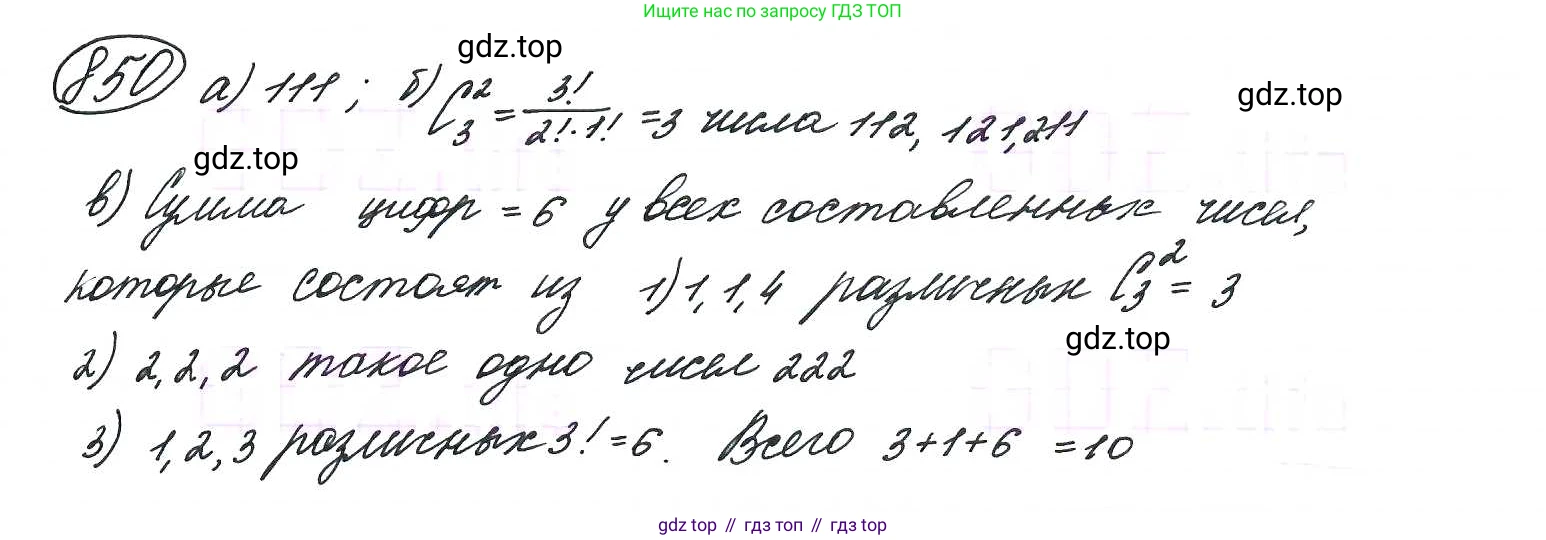 Ищите нас по запросу ГДЗ ТОП
gdz.top
850 а) 111; б) C₃² = 3!/(2!·1!) = 3 числа 112, 121, 211
gdz.top
gdz.top
в) Сумма цифр = 6 у всех составленных чисел,
которые состоят из 1) 1, 1, 4 различных C₃² = 3
gdz.top
2) 2, 2, 2 такое одно чисел 222
3) 1, 2, 3 различных 3! = 6. Всего 3+1+6 = 10
gdz top // гдз топ // гдз top